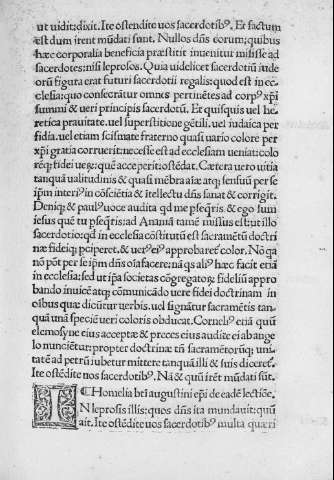 ut uidit: dixit. Ite ostendite uos sacerdotibꝰ. Et factum
ẽst dum irent mũdati sunt. Nullos dñs eorum; quibus
hæc corporalia beneficia præstitit inuenitur misisse ad
sacerdotes: nisi leprosos. Quia uidelicet sacerdotiũ iude
orũ figura erat futuri sacerdotii regalis: quod est in ec
clesia; quo consecrãtur omnes pertinẽtes ad corpꝰ xp̃i
summi & ueri principis sacerdotũ. Et quisquis uel he
retica prauitate. uel superstitione gẽtili. uel iudaica per
fidia. uel etiam scismate fraterno quasi uario colore per
xp̃i gratia corruerit: necesse est ad ecclesiam ueniat: colo
rẽq; fidei ueꝝ: quẽ acceperit: ostẽdat. Cætera uero uitia
tanquã ualitudinis & quasi mẽbra aiæ atq; sensuũ per se
ip̃m interiꝰ in cõsciẽtia & itellectu dñs sanat & corrigit.
Deniq; & paulꝰ uoce audita qd me ꝑseqris. & ego sum
iesus quẽ tu ꝑseqris: ad Ananiã tamẽ missus est: ut illo
sacerdotio: qd in ecclesia cõstitutũ est sacramẽtũ doctri
næ fideiq; ꝑciperet. & uerꝰ eiꝰ approbaret᷑ color. Nõ qa
nõ põt per se ip̃m dñs oĩa facere: nã qs aliꝰ hæc facit etiã
in ecclesia: sed ut ip̃a societas cõgregatoꝝ fideliũ appro
bando inuicẽ atq; cõmunicãdo uere fidei doctrinam in
oĩbus quæ dicũtur uerbis. uel signãtur sacramẽtis tan-
quã unã speciẽ ueri coloris obducat. Corneliꝰ etiã quũ
elemosynę eius acceptæ & preces eius auditę ei ab ange
lo nunciẽtur: propter doctrinæ tñ sacramẽtorũq; uni-
tatẽ ad petrũ iubetur mittere tanquã illi & suis diceret᷑.
Ite ostẽdite uos sacerdotibꝰ. Nã & quũ irẽt mũdati sũt.
¶ Homelia bt̃i augustini ep̃i de eadẽ lectiõe.
IN leprosis illis: quos dñs ita mundauit: quũ
ait. Ite ostẽdite uos sacerdotibꝰ multa quæri